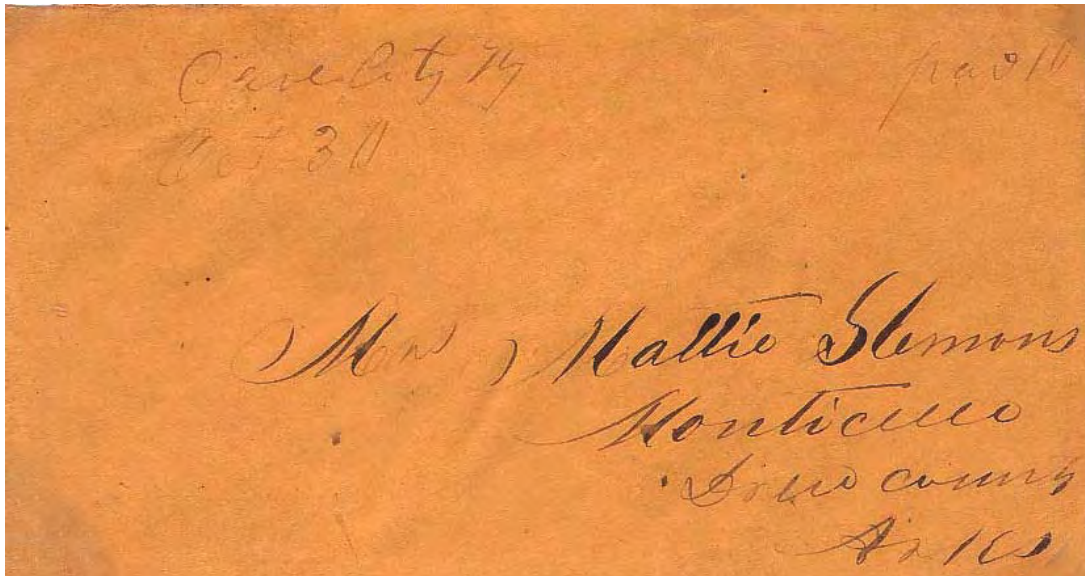 Cave City Ky
paid 10
Oct 30
Mrs Mattie Slemons
Monticello
Drew county
Arks